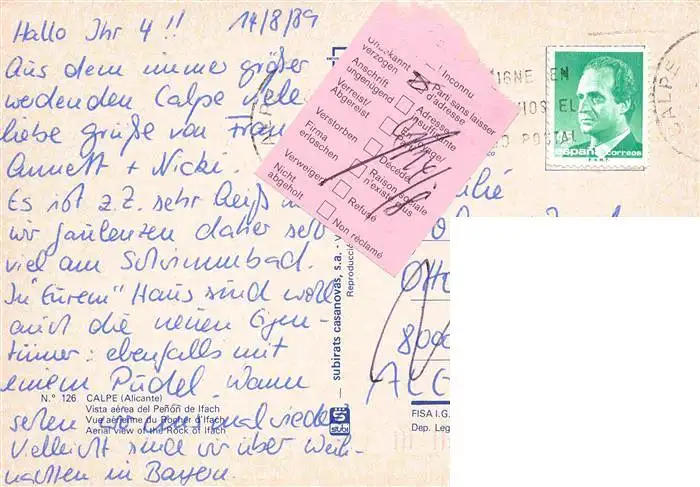 Hallo Ihr 4 !! 14/8/89
Aus dem immer größer
werdenden Calpe viele
liebe grüße von
Annett + Nicki.
Es ist z.Z. sehr heiß
wir faulenzen daher sehr
viel am Schwimmbad.
In "Eurem" Haus sind wohl
auch die neuen Eigen-
tümer: ebenfalls mit
einem Pudel. Wann
sehen wir uns mal wieder
Vielleicht sind wir über Weih-
nachten in Bayern.
N.º 126 CALPE (Alicante)
Vista aérea del Peñón de Ifach
Vue aérienne du Rocher d'Ifach
Aerial view of the Rock of Ifach
subirats casanovas, s.a. - v
Reproducció
subi
Unbekannt
verzogen
Inconnu
Parti sans laisser
d'adresse
Anschrift
ungenügend
Adresse
insuffisante
Verreist/
Abgereist
Verstorben
Décédé
Firma
erloschen
Raison sociale
n'existe plus
Verweigert
Refusé
Nicht
abgeholt
Non réclamé
IGNE EN
IOS EL
O POSTAL
CALPE
españa correos
Otto
8000
FISA I.G.
Dep. Leg